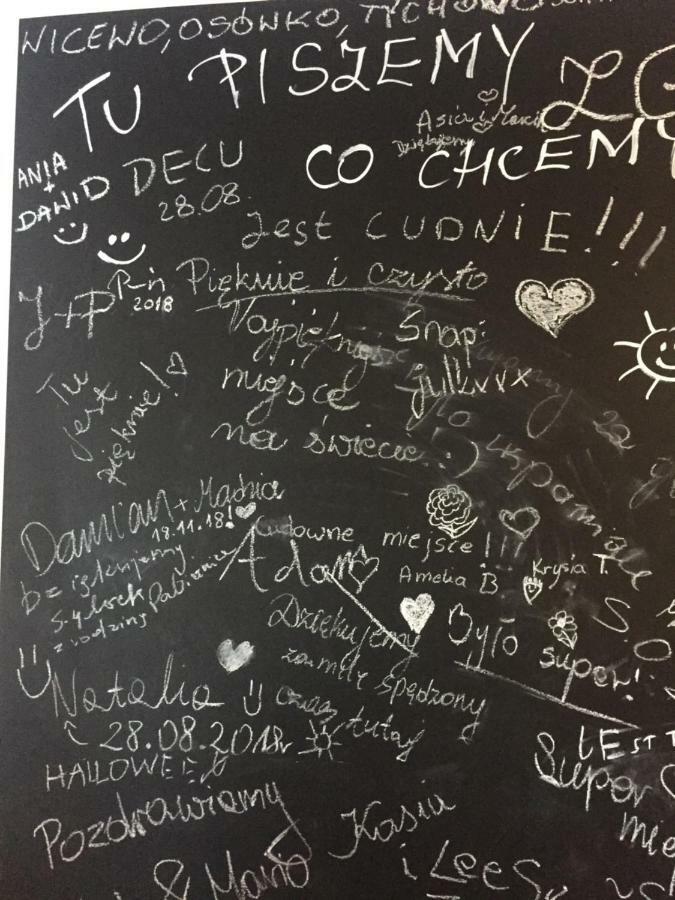 NICEWO, OSÓWKO, TYCHOWO
TU PISZEMY
Asia i Marcin
Dziękujemy
CO CHCEMY
ANIA
+
DAWID
DECU
28.08.
Jest CUDNIE!!!
J+P
P-ń
2018
Pięknie i czysto
Najpiękniejsze
miejsce
na świecie :)
Snap:
julkvvx
Tu
jest
pięknie!
za
wspaniałe
Damian + Madzia
18.11.18!
dziękujemy
z rodziną
Pabianice
Cudowne miejsce!!!
Adam
Amelia B
Krysia T.
Dziękujemy
za miłe spędzony
czas tutaj
Było
super!
Natalia
28.08.2018r
HALLOWEEN
Pozdrawiamy
Kasia
i
& Mario
JEST
Super
mie